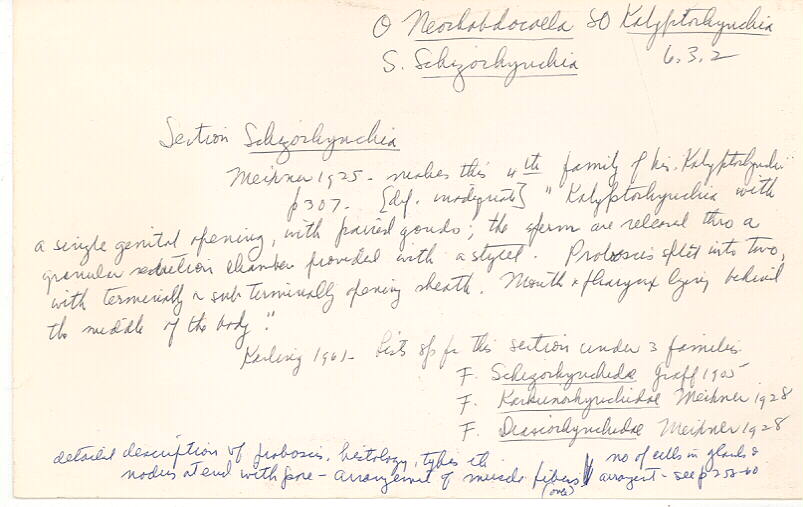 O Neorhabdocoela SO Kalyptorhynchia
S. Schizorhynchia 6.3.2
Section Schizorhynchia
Meixner 1925 - makes this 4th family of his Kalyptorhynchia
p 307. [def. inadequate] "Kalyptorhynchia with
a single genital opening, with paired gonads; the sperm are released thro a
granular secretion chamber provided with a stylet. Proboscis split into two,
with terminally or subterminally opening sheath. Mouth & pharynx lying behind
the middle of the body."
Karling 1961 - lists spp for this section under 3 families
F. Schizorhynchidae Graff 1905
F. Karkinorhynchidae Meixner 1928
F. Diascorhynchidae Meixner 1928
detailed description of proboscis, histology, types etc
nodus at end with pore - arrangement of muscle fibers
(over)
no of cells in glands &
arrangmt - see p 258-60